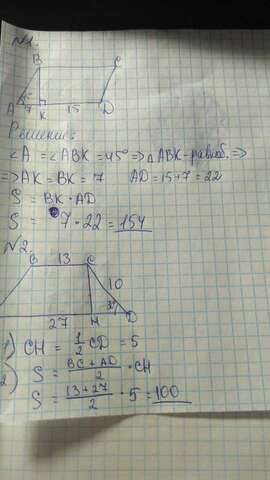 №1.
B C
A 7 K 15 D
Решение:
∠A = ∠ABK = 45° ⇒ △ABK - равноб. ⇒
⇒ AK = BK = 7 AD = 15 + 7 = 22
S = BK · AD
S = 7 · 22 = 154
№2.
B 13 C
10
27 H D
1) CH = 1/2 CD = 5
2) S = (BC + AD)/2 · CH
S = (13 + 27)/2 · 5 = 100